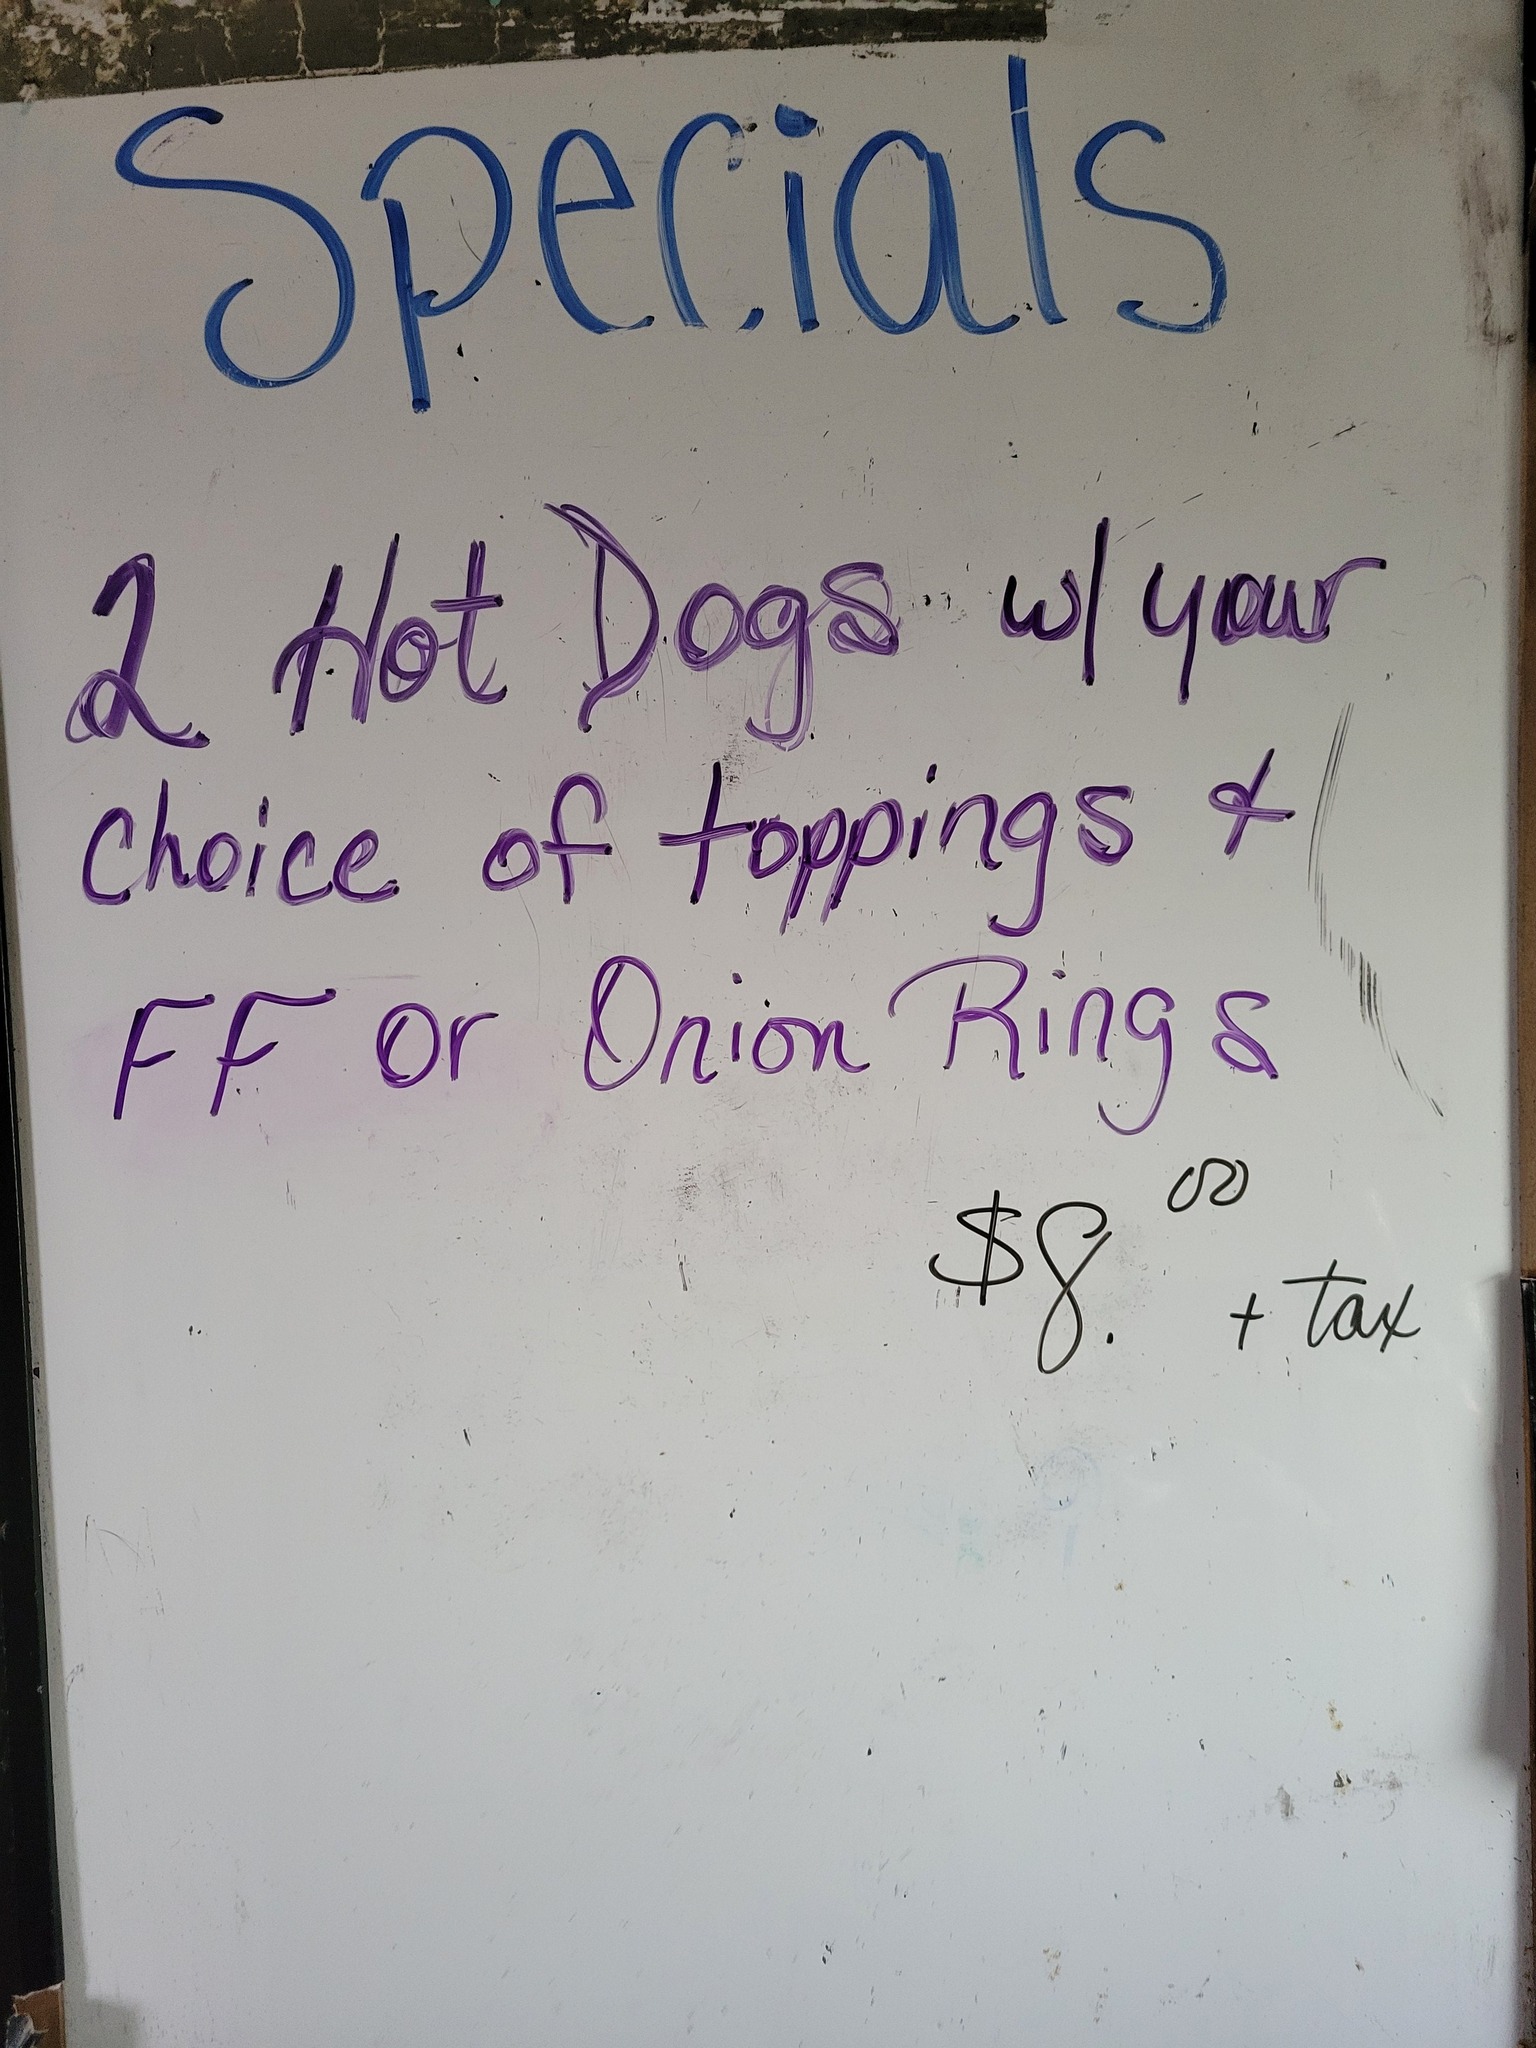 Specials
2 Hot Dogs w/ your
choice of toppings &
FF or Onion Rings
$8.00 + tax